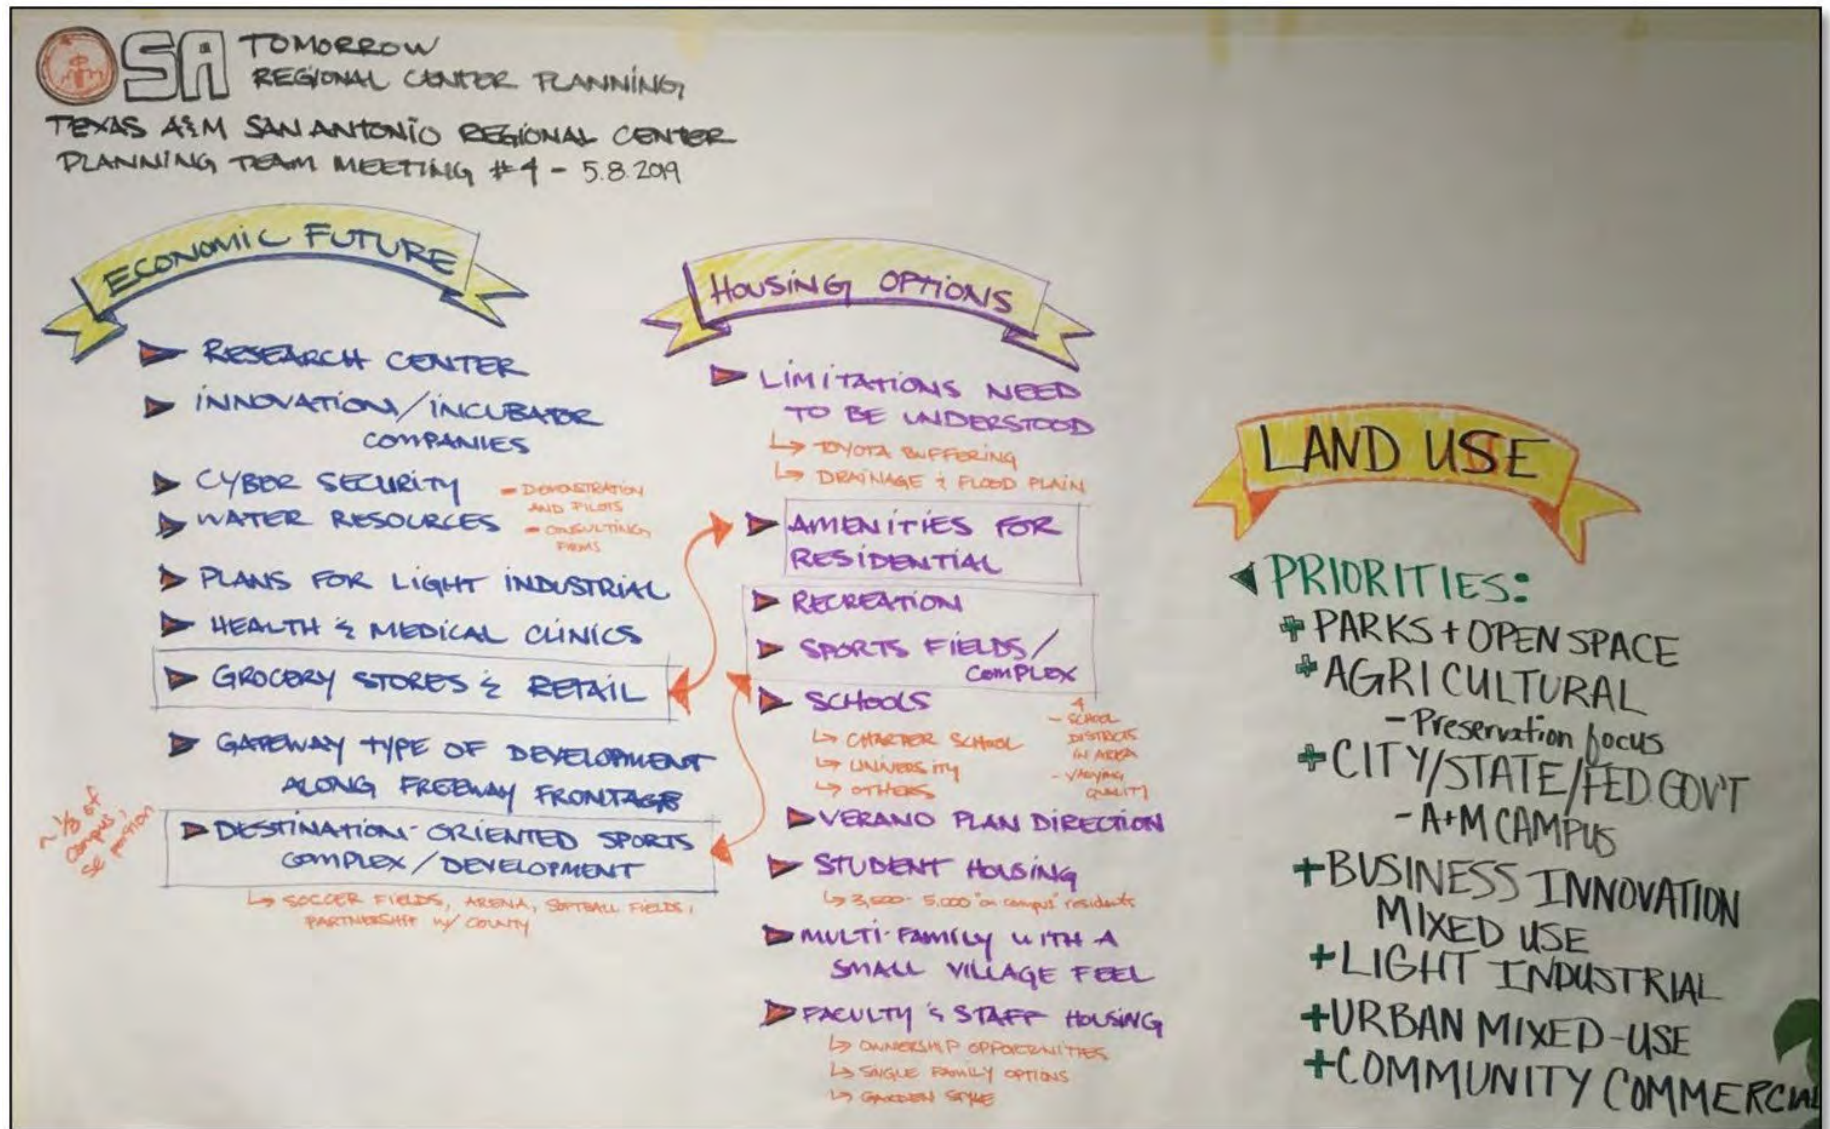 SA TOMORROW
REGIONAL CENTER PLANNING
TEXAS A&M SAN ANTONIO REGIONAL CENTER
PLANNING TEAM MEETING #4 - 5.8.2019
ECONOMIC FUTURE
RESEARCH CENTER
INNOVATION/INCUBATOR
COMPANIES
CYBER SECURITY
WATER RESOURCES
- DEMONSTRATION
AND PILOTS
- CONSULTING
FIRMS
PLANS FOR LIGHT INDUSTRIAL
HEALTH & MEDICAL CLINICS
GROCERY STORES & RETAIL
GATEWAY TYPE OF DEVELOPMENT
ALONG FREEWAY FRONTAGE
~ 1/3 of
campus,
SE portion
DESTINATION-ORIENTED SPORTS
COMPLEX/DEVELOPMENT
↳ SOCCER FIELDS, ARENA, SOFTBALL FIELDS,
PARTNERSHIP w/ COUNTY
HOUSING OPTIONS
LIMITATIONS NEED
TO BE UNDERSTOOD
↳ TOYOTA BUFFERING
↳ DRAINAGE & FLOOD PLAIN
AMENITIES FOR
RESIDENTIAL
RECREATION
SPORTS FIELDS/
COMPLEX
SCHOOLS
↳ CHARTER SCHOOL
↳ UNIVERSITY
↳ OTHERS
4
- SCHOOL
DISTRICTS
IN AREA
- VARYING
QUALITY
VERANO PLAN DIRECTION
STUDENT HOUSING
↳ 3,500 - 5,000 "on campus" residents
MULTI-FAMILY WITH A
SMALL VILLAGE FEEL
FACULTY & STAFF HOUSING
↳ OWNERSHIP OPPORTUNITIES
↳ SINGLE FAMILY OPTIONS
↳ GARDEN STYLE
LAND USE
PRIORITIES:
+ PARKS + OPEN SPACE
+ AGRICULTURAL
- Preservation focus
+ CITY/STATE/FED GOV'T
- A+M CAMPUS
+ BUSINESS INNOVATION
MIXED USE
+ LIGHT INDUSTRIAL
+ URBAN MIXED-USE
+ COMMUNITY COMMERCIAL